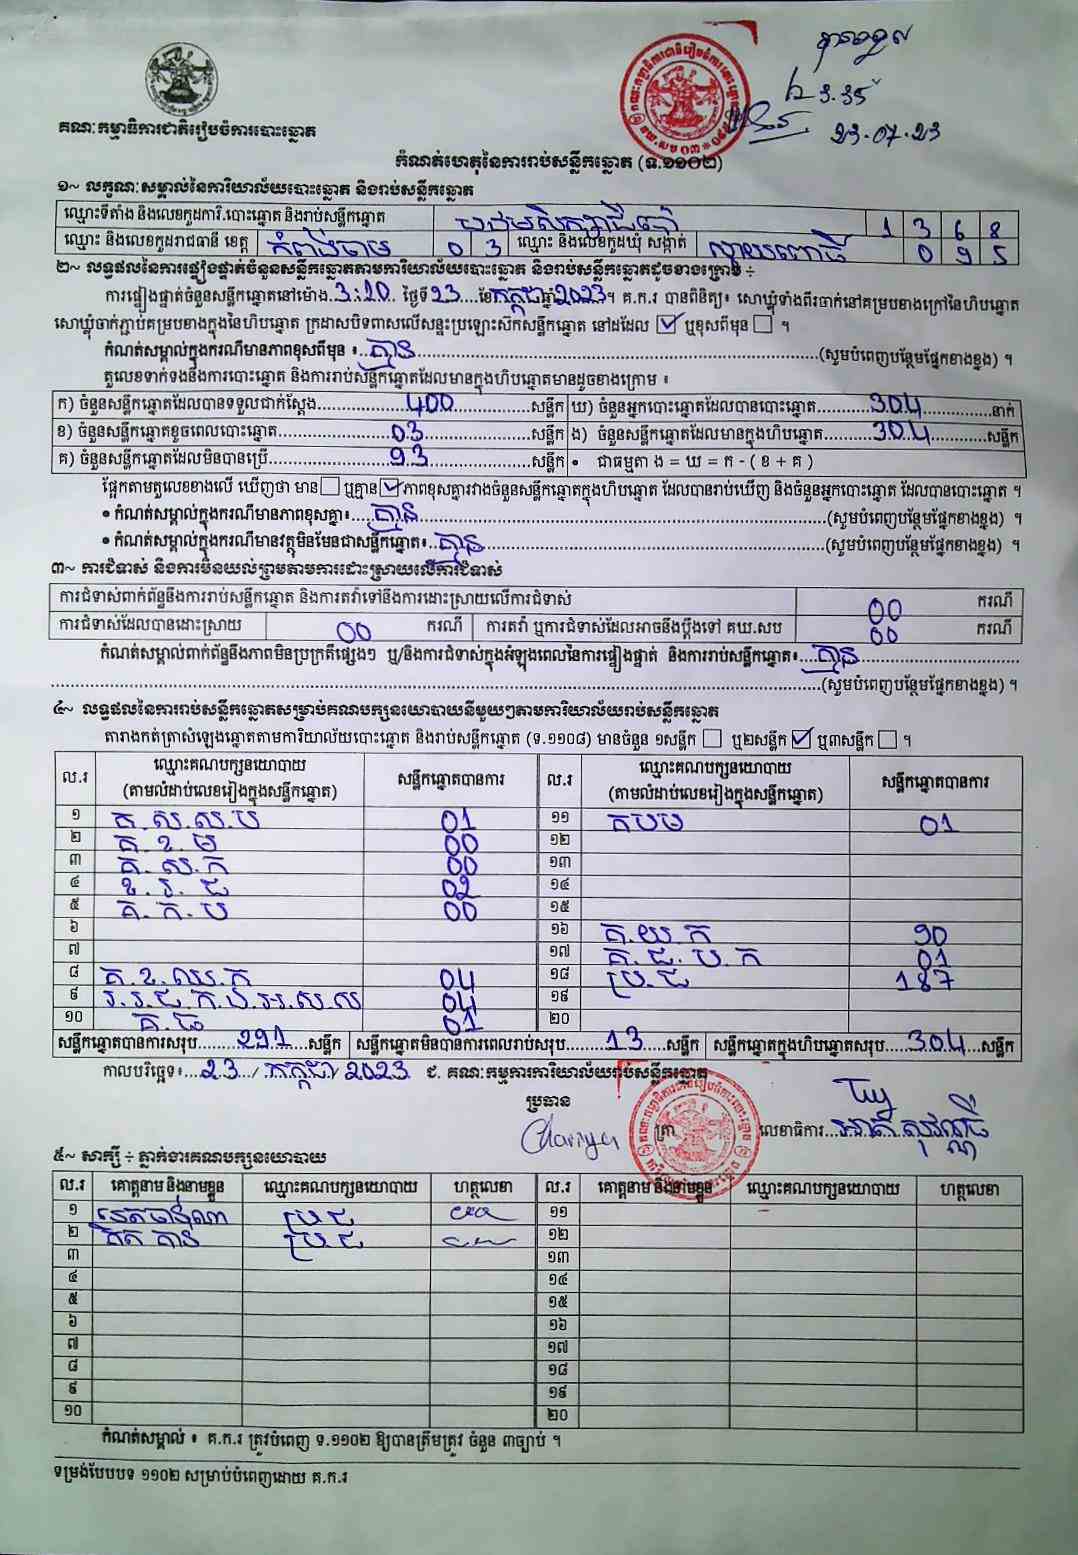 គណៈកម្មាធិការជាតិរៀបចំការបោះឆ្នោត
3.35
23-07-23
កំណត់ហេតុនៃការរាប់សន្លឹកឆ្នោត (ទ.១១០២)
១~ លក្ខណៈសម្គាល់នៃការិយាល័យបោះឆ្នោត និងរាប់សន្លឹកឆ្នោត
ឈ្មោះទីតាំង និងលេខកូដការិ.បោះឆ្នោត និងរាប់សន្លឹកឆ្នោត 1 3 6 8
ឈ្មោះ និងលេខកូដរាជធានី ខេត្ត កំពង់ចាម 0 3 ឈ្មោះ និងលេខកូដឃុំ សង្កាត់ ស្វាយពោធិ៍
២~ លទ្ធផលនៃការផ្ទៀងផ្ទាត់ចំនួនសន្លឹកឆ្នោតតាមការិយាល័យបោះឆ្នោត និងរាប់សន្លឹកឆ្នោតដូចខាងក្រោម ÷
ការផ្ទៀងផ្ទាត់ចំនួនសន្លឹកឆ្នោតនៅម៉ោង 3:20 ថ្ងៃទី 23 ខែ កក្កដា ឆ្នាំ 2023។ គ.ក.រ បានពិនិត្យ៖ សោឃ្លុំទាំងពីរចាក់នៅគម្របខាងក្រៅនៃហិបឆ្នោត
សោឃ្លុំចាក់ភ្ជាប់គម្របខាងក្នុងនៃហិបឆ្នោត ក្រដាសបិទពាសលើសន្ទះប្រឡោះស៊កសន្លឹកឆ្នោត នៅដដែល ☑ ឬខុសពីមុន ☐ ។
កំណត់សម្គាល់ក្នុងករណីមានភាពខុសពីមុន ៖ គ្មាន (សូមបំពេញបន្ថែមផ្នែកខាងខ្នង) ។
តួលេខទាក់ទងនឹងការបោះឆ្នោត និងការរាប់សន្លឹកឆ្នោតដែលមានក្នុងហិបឆ្នោតមានដូចខាងក្រោម ៖
ក) ចំនួនសន្លឹកឆ្នោតដែលបានទទួលជាក់ស្តែង 400 សន្លឹក ឃ) ចំនួនអ្នកបោះឆ្នោតដែលបានបោះឆ្នោត 304 នាក់
ខ) ចំនួនសន្លឹកឆ្នោតខូចពេលបោះឆ្នោត 03 សន្លឹក ង) ចំនួនសន្លឹកឆ្នោតដែលមានក្នុងហិបឆ្នោត 304 សន្លឹក
គ) ចំនួនសន្លឹកឆ្នោតដែលមិនបានប្រើ 93 សន្លឹក • ជាធម្មតា ង = ឃ = ក - ( ខ + គ )
ផ្អែកតាមតួលេខខាងលើ ឃើញថា មាន ☐ ឬគ្មាន ☑ ភាពខុសគ្នារវាងចំនួនសន្លឹកឆ្នោតក្នុងហិបឆ្នោត ដែលបានរាប់ឃើញ និងចំនួនអ្នកបោះឆ្នោត ដែលបានបោះឆ្នោត ។
• កំណត់សម្គាល់ក្នុងករណីមានភាពខុសគ្នា៖ គ្មាន (សូមបំពេញបន្ថែមផ្នែកខាងខ្នង) ។
• កំណត់សម្គាល់ក្នុងករណីមានវត្ថុមិនមែនជាសន្លឹកឆ្នោត៖ គ្មាន (សូមបំពេញបន្ថែមផ្នែកខាងខ្នង) ។
៣~ ការជំទាស់ និងការមិនយល់ព្រមតាមការដោះស្រាយលើការជំទាស់
ការជំទាស់ពាក់ព័ន្ធនឹងការរាប់សន្លឹកឆ្នោត និងការតវ៉ាទៅនឹងការដោះស្រាយលើការជំទាស់ 00 ករណី
ការជំទាស់ដែលបានដោះស្រាយ 00 ករណី ការតវ៉ា ឬការជំទាស់ដែលអាចនឹងប្តឹងទៅ គឃ.សប 00 ករណី
កំណត់សម្គាល់ពាក់ព័ន្ធនឹងភាពមិនប្រក្រតីផ្សេងៗ ឬ/និងការជំទាស់ក្នុងអំឡុងពេលនៃការផ្ទៀងផ្ទាត់ និងការរាប់សន្លឹកឆ្នោត៖ គ្មាន
(សូមបំពេញបន្ថែមផ្នែកខាងខ្នង) ។
៤~ លទ្ធផលនៃការរាប់សន្លឹកឆ្នោតសម្រាប់គណបក្សនយោបាយនីមួយៗតាមការិយាល័យរាប់សន្លឹកឆ្នោត
តារាងកត់ត្រាសំឡេងឆ្នោតតាមការិយាល័យបោះឆ្នោត និងរាប់សន្លឹកឆ្នោត (ទ.១១០៨) មានចំនួន ១សន្លឹក ☐ ឬ២សន្លឹក ☑ ឬ៣សន្លឹក ☐ ។
ល.រ ឈ្មោះគណបក្សនយោបាយ (តាមលំដាប់លេខរៀងក្នុងសន្លឹកឆ្នោត) សន្លឹកឆ្នោតបានការ ល.រ ឈ្មោះគណបក្សនយោបាយ (តាមលំដាប់លេខរៀងក្នុងសន្លឹកឆ្នោត) សន្លឹកឆ្នោតបានការ
១ គ.ស.ស.ប 01 ១១ គបម 01
២ គ.ខ.ម 00 ១២
៣ គ.ស.ក 00 ១៣
៤ ខ.រ.ជ 02 ១៤
៥ គ.ក.ប 00 ១៥
៦ ១៦ គ.យ.ក 90
៧ ១៧ គ.ជ.ប.ក 01
៨ គ.ខ.ឈ.ក 04 ១៨ ប្រ.ជ 187
៩ 04 ១៩
១០ គ.ធ 01 ២០
សន្លឹកឆ្នោតបានការសរុប 291 សន្លឹក សន្លឹកឆ្នោតមិនបានការពេលរាប់សរុប 13 សន្លឹក សន្លឹកឆ្នោតក្នុងហិបឆ្នោតសរុប 304 សន្លឹក
កាលបរិច្ឆេទ៖ 23 / កក្កដា / 2023 ជ. គណៈកម្មការការិយាល័យរាប់សន្លឹកឆ្នោត
ប្រធាន
ត្រា លេខាធិការ
៥~ សាក្សី ÷ ភ្នាក់ងារគណបក្សនយោបាយ
ល.រ គោត្តនាម និងនាមខ្លួន ឈ្មោះគណបក្សនយោបាយ ហត្ថលេខា ល.រ គោត្តនាម និងនាមខ្លួន ឈ្មោះគណបក្សនយោបាយ ហត្ថលេខា
១ ប្រ.ជ ១១
២ ប្រ.ជ ១២
៣ ១៣
៤ ១៤
៥ ១៥
៦ ១៦
៧ ១៧
៨ ១៨
៩ ១៩
១០ ២០
កំណត់សម្គាល់ ៖ គ.ក.រ ត្រូវបំពេញ ទ.១១០២ ឱ្យបានត្រឹមត្រូវ ចំនួន ៣ច្បាប់ ។
ទម្រង់បែបបទ ១១០២ សម្រាប់បំពេញដោយ គ.ក.រ